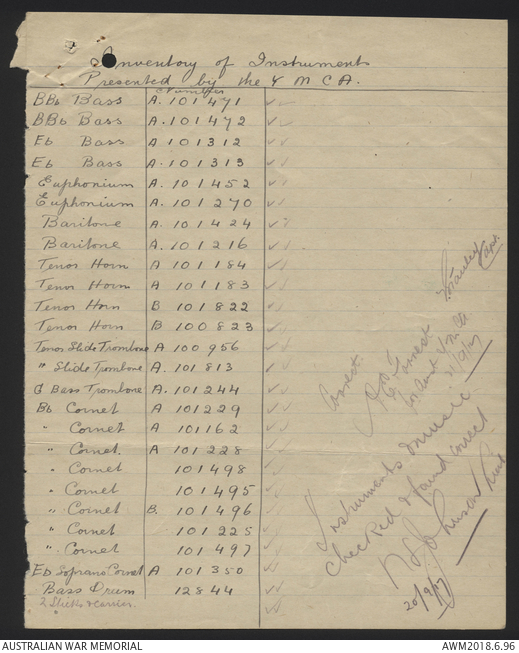 Inventory of Instruments
Presented by the Y M C A.
Number
BBb Bass A. 101471
BBb Bass A. 101472
Eb Bass A. 101312
Eb Bass A. 101313
Euphonium A. 101452
Euphonium A. 101270
Baritone A. 101424
Baritone A. 101216
Tenor Horn A 101184
Tenor Horn A 101183
Tenor Horn B 101822
Tenor Horn B 100823
Tenor Slide Trombone A 100956
" Slide Trombone A. 101813
G Bass Trombone A. 101244
Bb Cornet A 101229
" Cornet A 101162
" Cornet. A 101228
" Cornet 101498
" Cornet 101495
" Cornet B. 101496
" Cornet 101225
" Cornet 101497
Eb Soprano Cornet A 101350
Bass Drum 12844
2 Sticks & carrier.
Correct
Capt.
11/9/17
Instruments & music
checked & found correct
Johnson
20/9/17
AUSTRALIAN WAR MEMORIAL
AWM2018.6.96